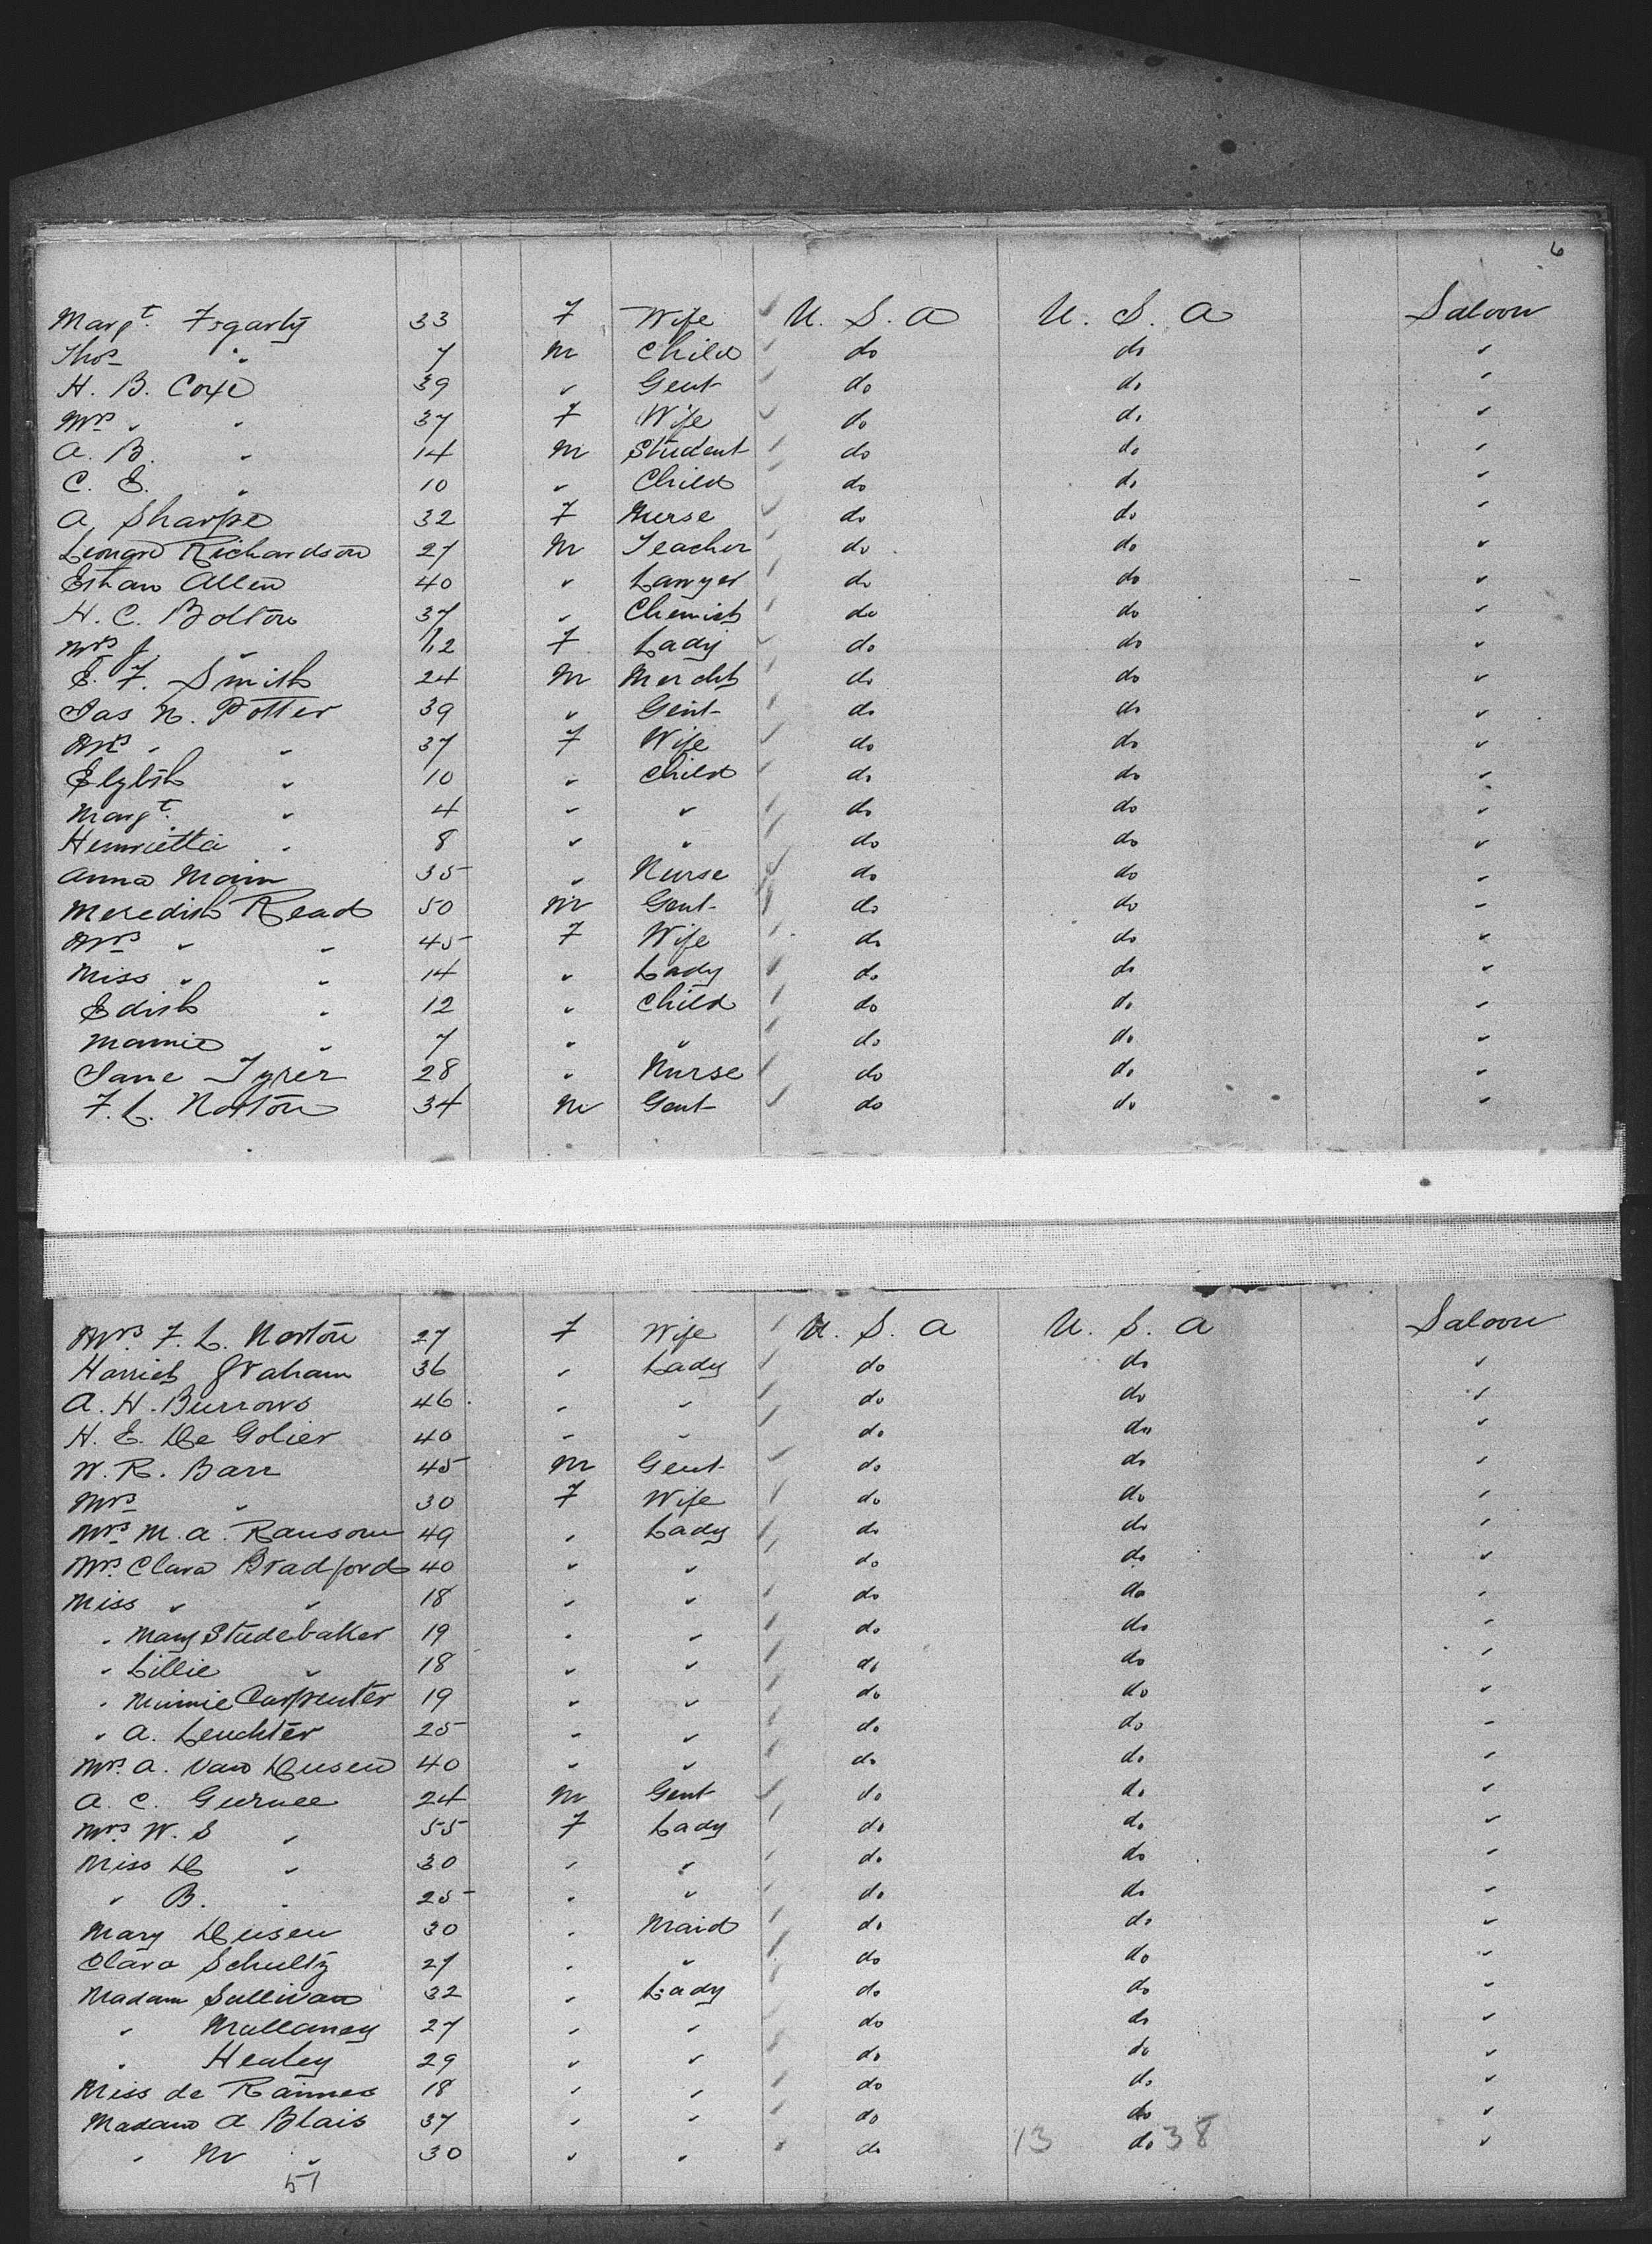 6
Margt. Fogarty 33 F Wife U. S. A U. S. A Saloon
Thos " 7 M Child do do "
H. B. Coxe 39 " Gent do do "
Mrs " " 37 F Wife do do "
A. B. " 14 M Student do do "
C. E. " 10 " Child do do "
A Sharpe 32 F Nurse do do "
Leonard Richardson 27 M Teacher do do "
Ethan Allen 40 " Lawyer do do "
H. C. Bolton 37 " Chemist do do "
Mrs J " F Lady do do "
E. F. Smith 24 M Mercht do do "
Jas N. Potter 39 " Gent do do "
Mrs " " 37 F Wife do do "
" 10 " Child do do "
Margt. " 4 " " do do "
Henrietta " 8 " " do do "
Anna Main 35 " Nurse do do "
Meredith Read 50 M Gent do do "
Mrs " " 45 F Wife do do "
Miss " " 14 " Lady do do "
Edith " 12 " Child do do "
Mamie " 7 " " do do "
Jane Tyrer 28 " Nurse do do "
F. L. Norton 34 M Gent do do "
Mrs. F. L. Norton 27 F Wife U. S. A U. S. A Saloon
Harriet Graham 36 " Lady do do "
A. H. Burrows 46 " " do do "
H. E. De Golier 40 " " do do "
W. R. Barr 45 M Gent do do "
Mrs " 30 F Wife do do "
Mrs M. A. Ransom 49 " Lady do do "
Mrs. Clara Bradford 40 " " do do "
Miss " " 18 " " do do "
" Mary Studebaker 19 " " do do "
" Lillie " 18 " " do do "
" Minnie Carpenter 19 " " do do "
" A. Leuchter 25 " " do do "
Mrs. A. Van Deusen 40 " " do do "
A. C. Gurnee 24 M Gent do do "
Mrs. W. S " 55 F Lady do do "
Miss D " 30 " " do do "
" B. " 25 " " do do "
Mary Deusen 30 " Maid do do "
Clara Schultz 27 " " do do "
Madam Sullivan 32 " Lady do do "
" Mullaney 27 " " do do "
" Healey 29 " " do do "
Miss de Rannes 18 " " do do "
Madam A Blais 37 " " do do "
" M " 30 " " do 13 do 38 "
51